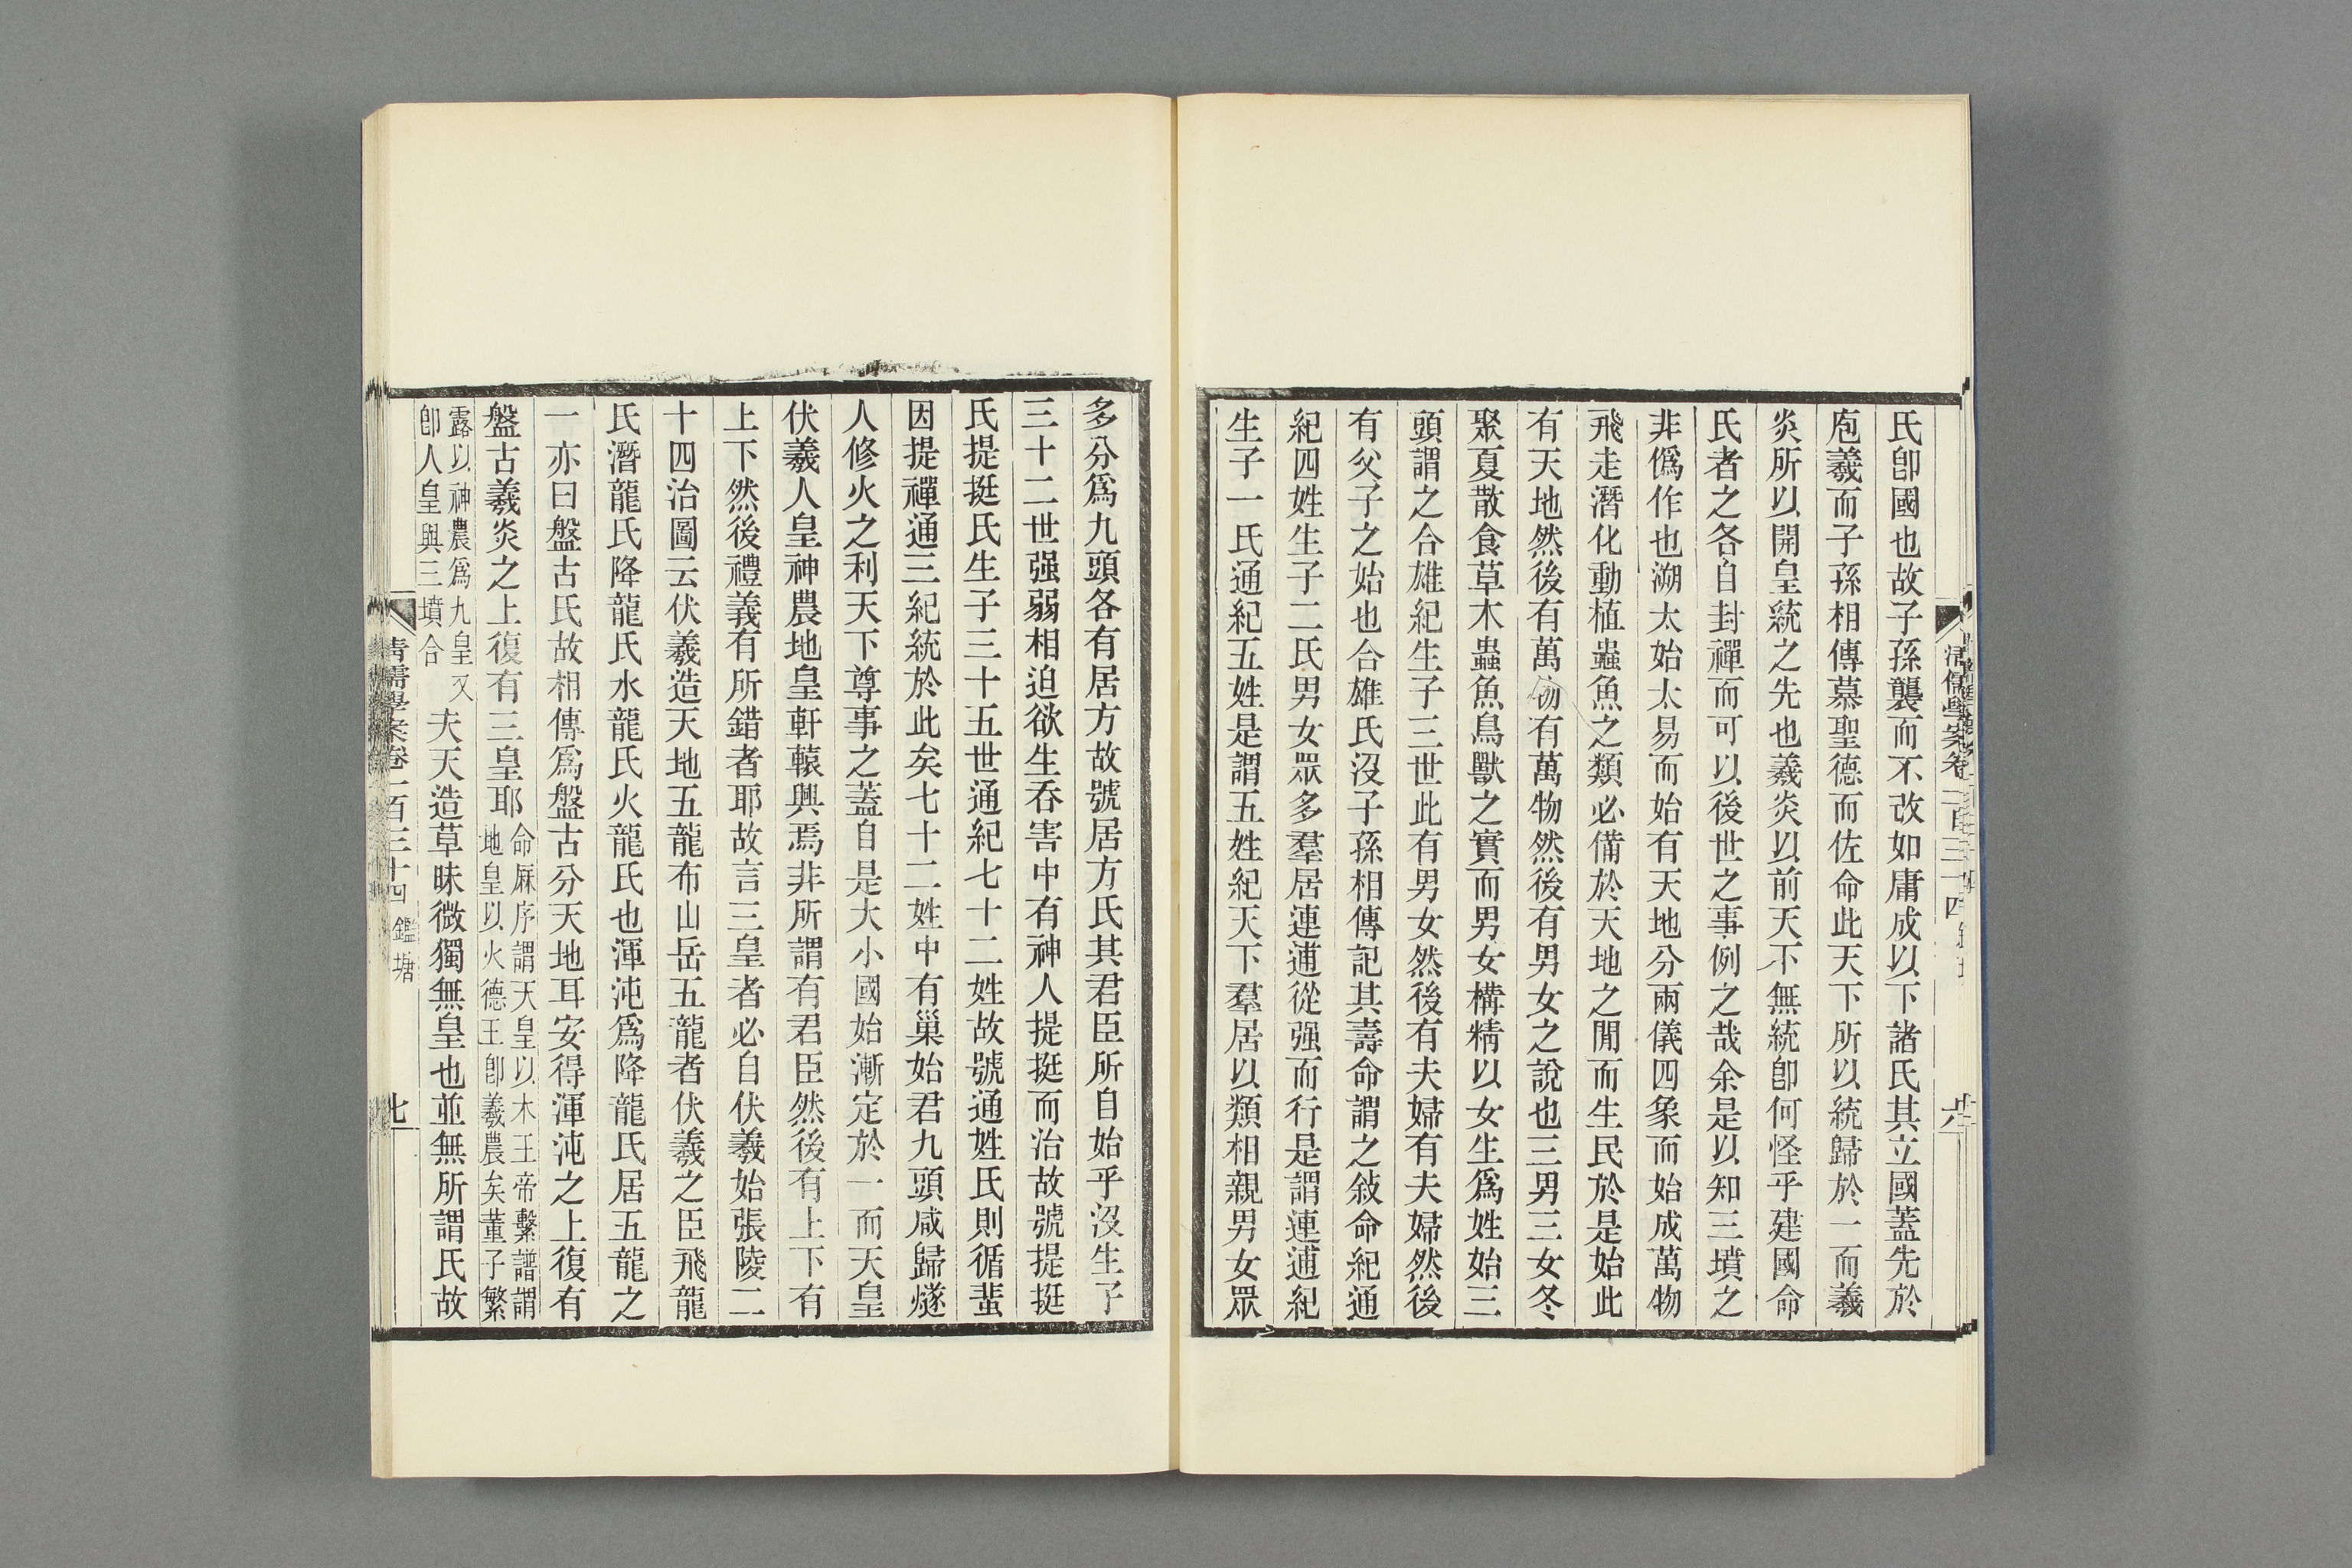 氏卽國也故子孫襲而不改如庸成以下諸氏其立國蓋先於
庖羲而子孫相傳慕聖德而佐命此天下所以統歸於一而羲
炎所以開皇統之先也羲炎以前天不無統卽何怪乎建國命
氏者之各自封禪而可以後世之事例之哉余是以知三墳之
非僞作也溯太始太易而始有天地分兩儀四象而始成萬物
飛走潛化動植蟲魚之類必備於天地之閒而生民於是始此
有天地然後有萬物有萬物然後有男女之說也三男三女冬
聚夏散食草木蟲魚鳥獸之實而男女構精以女生爲姓始三
頭謂之合雄紀生子三世此有男女然後有夫婦有夫婦然後
有父子之始也合雄氏沒子孫相傳記其壽命謂之敍命紀通
紀四姓生子二氏男女眾多羣居連逋從强而行是謂連逋紀
生子一氏通紀五姓是謂五姓紀天下羣居以類相親男女眾
多分爲九頭各有居方故號居方氏其君臣所自始乎沒生子
三十二世强弱相迫欲生吞害中有神人提挺而治故號提挺
氏提挺氏生子三十五世通紀七十二姓故號通姓氏則循蜚
因提禪通三紀統於此矣七十二姓中有巢始君九頭咸歸燧
人修火之利天下尊事之蓋自是大小國始漸定於一而天皇
伏羲人皇神農地皇軒轅興焉非所謂有君臣然後有上下有
上下然後禮義有所錯者耶故言三皇者必自伏羲始張陵二
十四治圖云伏羲造天地五龍布山岳五龍者伏羲之臣飛龍
氏潛龍氏降龍氏水龍氏火龍氏也渾沌爲降龍氏居五龍之
一亦曰盤古氏故相傳爲盤古分天地耳安得渾沌之上復有
盤古羲炎之上復有三皇耶
命厤序謂天皇以木王帝繫譜謂
地皇以火德王卽羲農矣董子繁
露以神農爲九皇又
卽人皇與三墳合
夫天造草昧微獨無皇也並無所謂氏故
清儒學案卷二百三十四 鑑塘
七